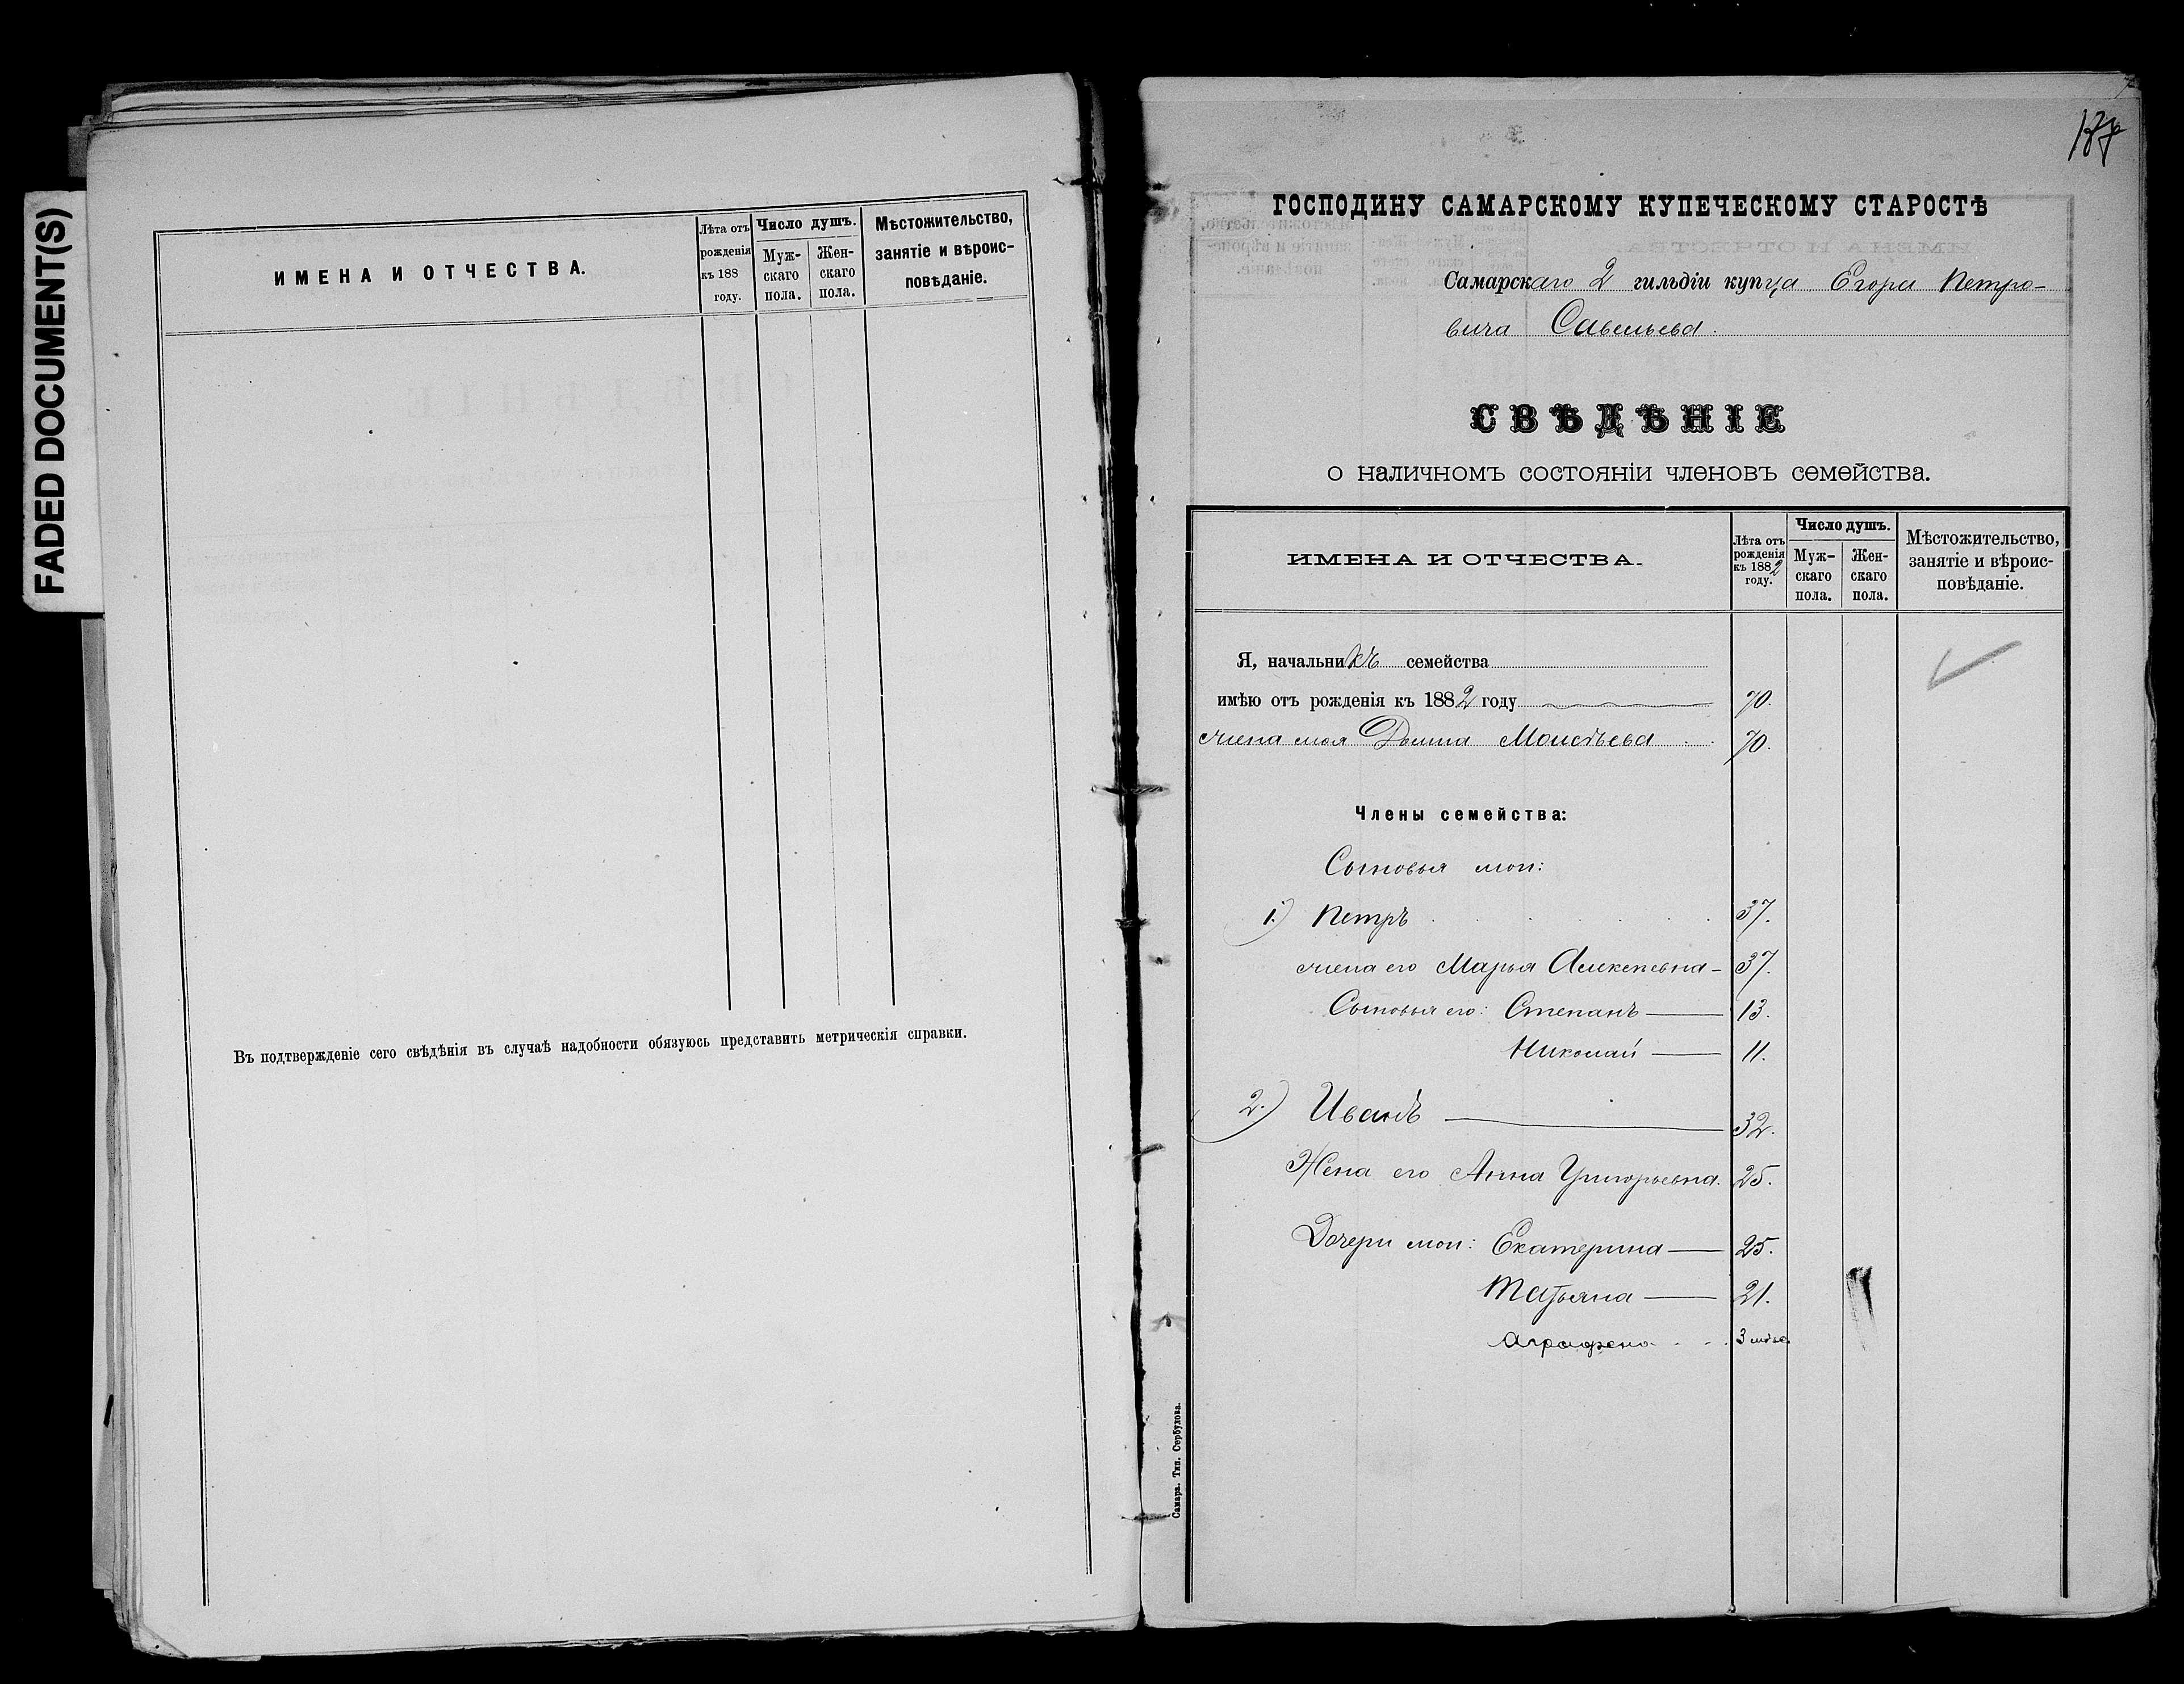 FADED DOCUMENT(S)
ИМЕНА И ОТЧЕСТВА.
Лѣта отъ рожденія къ 188 году.
Число душъ.
Мужскаго пола.
Женскаго пола.
Мѣстожительство, занятіе и вѣроисповѣданіе.
Въ подтвержденіе сего свѣдѣнія въ случаѣ надобности обязуюсь представить метрическія справки.
ГОСПОДИНУ САМАРСКОМУ КУПЕЧЕСКОМУ СТАРОСТѢ
Самарскаго 2 гильдіи купца Егора Петро-
вича Савельева.
СВѢДѢНІЕ
о наличномъ состояніи членовъ семейства.
ИМЕНА И ОТЧЕСТВА.
Лѣта отъ рожденія къ 1882 году.
Число душъ.
Муж-скаго пола.
Жен-скаго пола.
Мѣстожительство, занятіе и вѣроис-повѣданіе.
Я, начальникъ семейства
имѣю отъ рожденія къ 1882 году 70.
жена моя Домна Моисѣева 70.
Члены семейства:
Сыновья мои:
1.) Петръ 37.
жена его Марья Алексевна - 37.
Сыновья его: Степанъ — 13.
Николай — 11.
2.) Иванъ — 32.
Жена его Анна Григорьевна. 25.
Дочери мои: Екатерина — 25.
Татьяна — 21.
Аграфена 3
Самара. Тип. Сербулова.